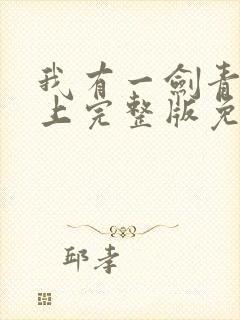 我有一剑青
上完整版免
邱孝